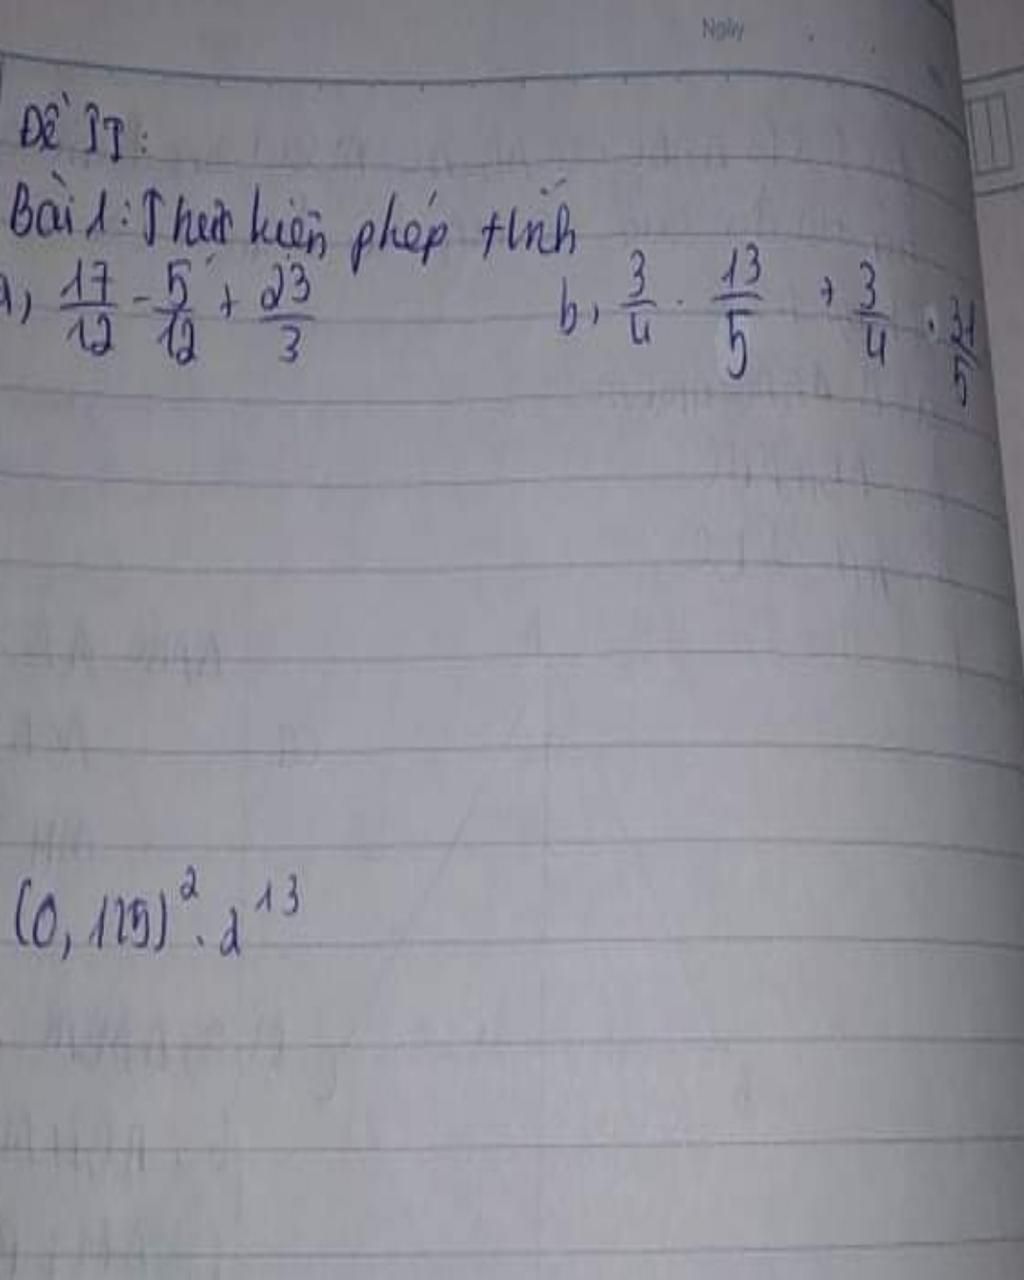 Ngày
ĐỀ II:
Bài 1: Thực hiện phép tính
a, 17/12 - 5/12 + 23/3 b, 3/4 . 13/5 + 3/4 . 31/5
(0,125)^2 . 2^13